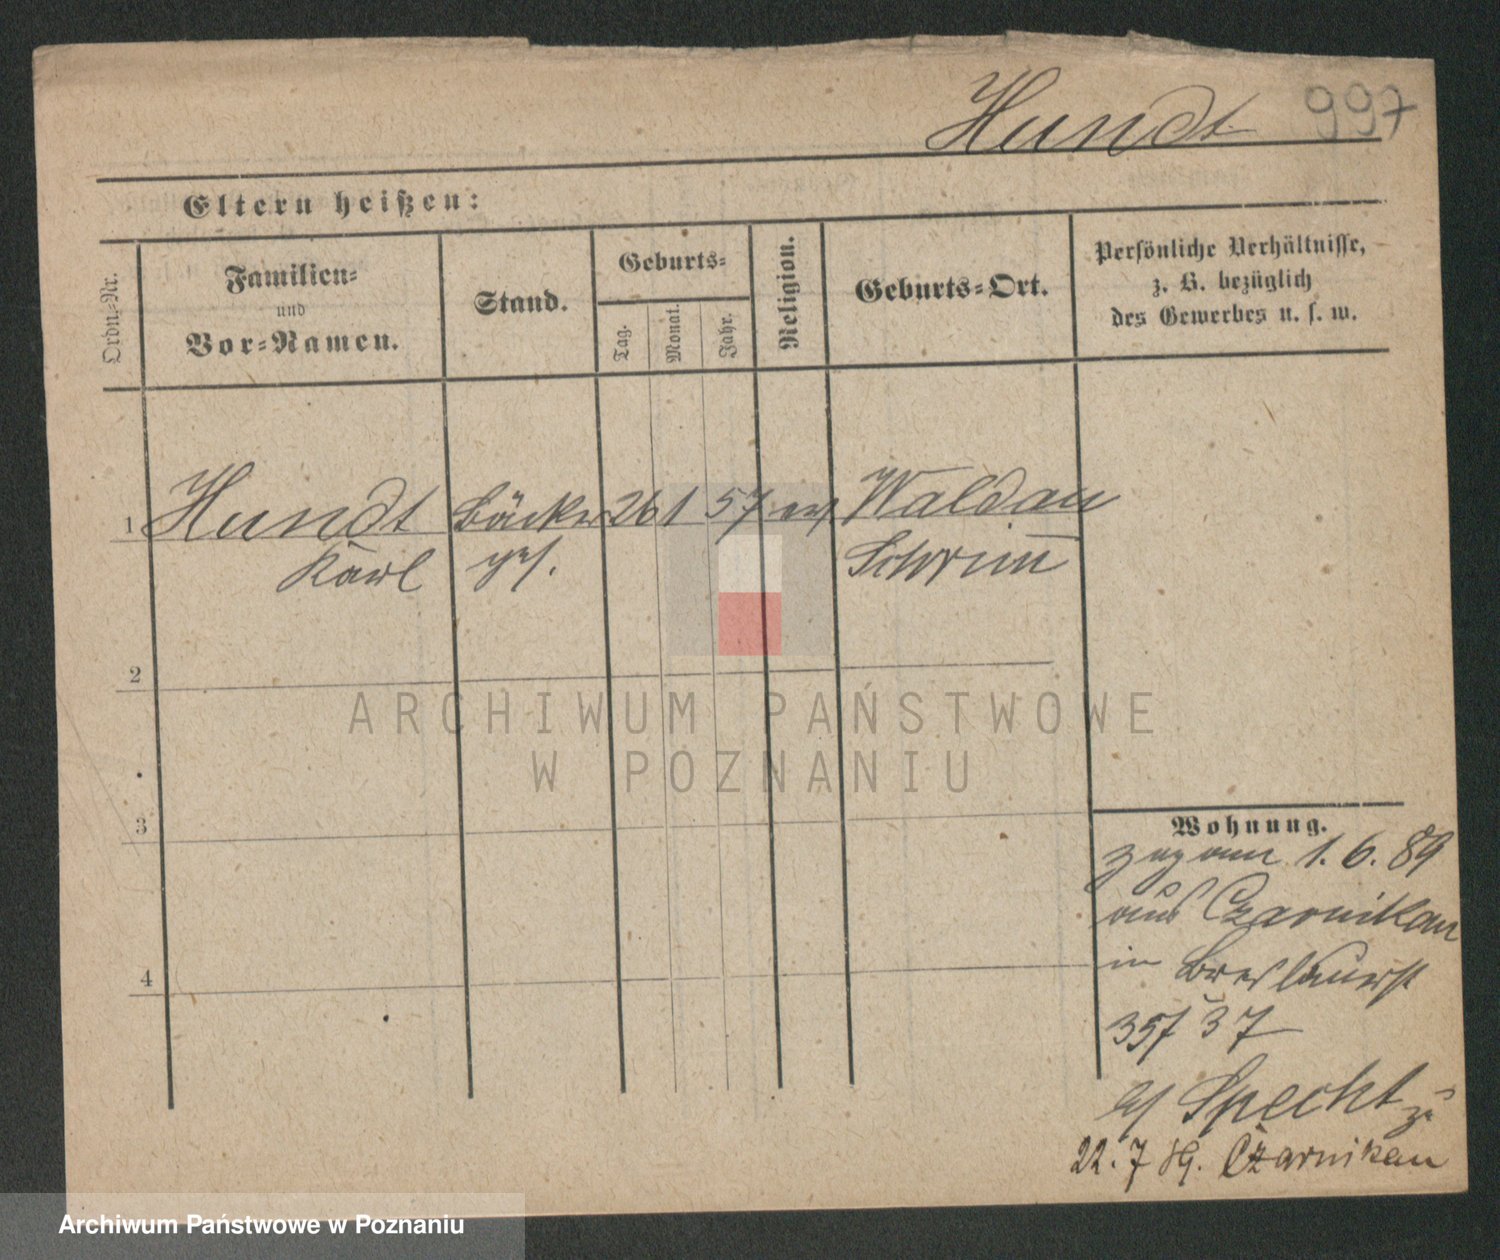 Hundt 997
Eltern heißen:
Ordn.=Nr.
Familien=
und
Vor=Namen.
Stand.
Geburts=
Tag.
Monat.
Jahr.
Religion.
Geburts=Ort.
Persönliche Verhältnisse,
z. B. bezüglich
des Gewerbes u. s. w.
1 Hundt Bäcker 26 1 57 ev. Waldau
Karl ges. Schrim̅
2
3
4
Wohnung.
zugam 1. 6. 89
aus Czarnikau
in Breslauerst
35/37
b/ Specht zu
22. 7 89. Czarnikau
ARCHIWUM PAŃSTWOWE
W POZNANIU
Archiwum Państwowe w Poznaniu